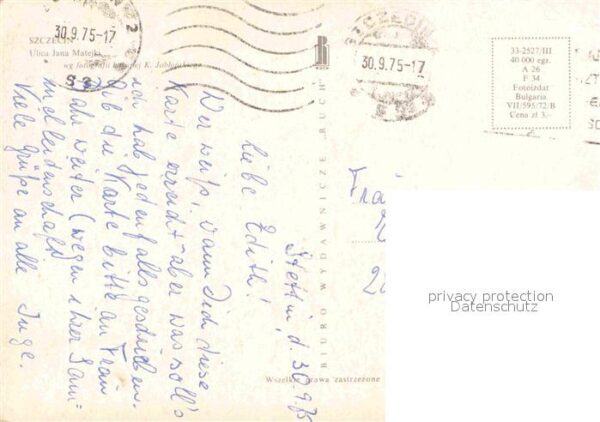 SZCZECIN
Ulica Jana Matejki
wg fotografii barwnej K. Jabłońskiego
30.9.75-17
SZCZECIN
30.9.75-17
33-2527/III
40 000 egz.
A 26
F 34
Fotoizdat
Bulgaria
VII/595/72/B
Cena zł 3,-
BIURO WYDAWNICZE RUCH
Stettin, d. 30.9.75
Liebe Edith!
Wer weiß, wann Dich diese
Karte erreicht - aber was soll's
ich hab jedenfalls geschrieben.
Gib die Karte bitte an Frau
weiter (wegen ihrer Sam-
melleidenschaft)
Viele Grüße an alle Inge.
Wszelkie prawa zastrzeżone
privacy protection
Datenschutz